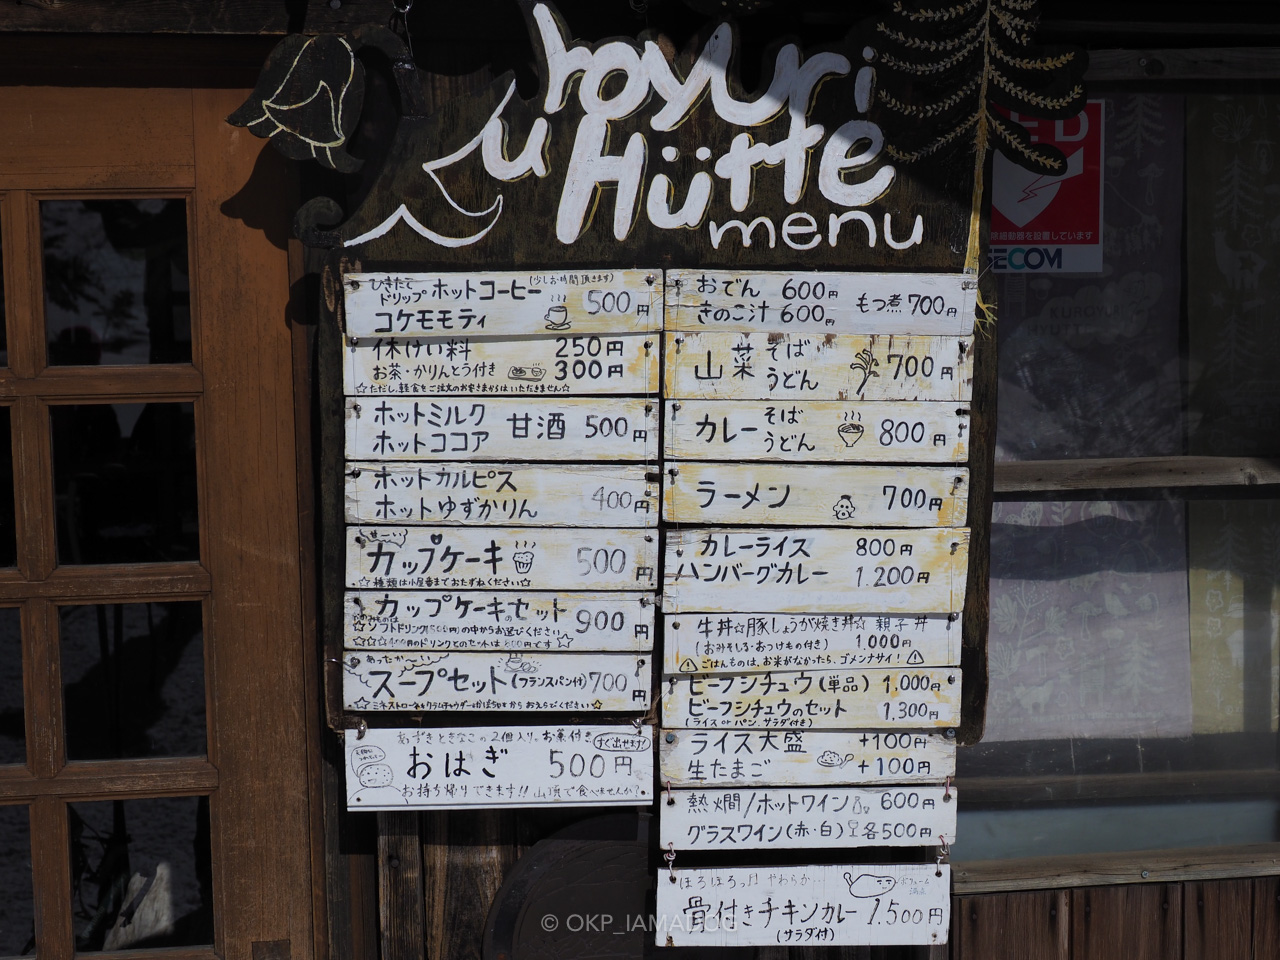 Kuroyuri
Hütte
menu
ED
除細動器を設置しています
SECOM
ひきたて
(少しお時間頂きます)
ドリップ ホットコーヒー
コケモモティ
500円
休けい料 250円
お茶・かりんとう付き 300円
☆ただし、軽食をご注文のお客さまからはいただきません☆
ホットミルク
ホットココア
甘酒 500円
ホットカルピス
ホットゆずかりん
400円
カップケーキ 500円
☆種類は小屋番までおたずねください☆
カップケーキのセット 900円
☆ソフトドリンク(500円)の中からお選びください
☆☆☆400円のドリンクとのセットは800円です☆
あったか
スープセット(フランスパン付) 700円
☆ミネストローネ
からおえらびください☆
あずきときなこの2個入り。お菓付き
すぐ出せます!
おはぎ 500円
お持ち帰りできます!! 山頂で食べませんか?
おでん 600円
きのこ汁 600円
もつ煮 700円
山菜 そば
うどん
700円
カレー そば
うどん
800円
ラーメン 700円
カレーライス 800円
ハンバーグカレー 1.200円
牛丼☆豚しょうが焼き丼☆親子丼
(おみそしる・おつけもの付き) 1.000円
ごはんものは、お米がなかったら、ゴメンナサイ!
ビーフシチュウ(単品) 1,000円
ビーフシチュウのセット 1,300円
(ライス or パン、サラダ付き)
ライス大盛 +100円
生たまご +100円
熱燗/ホットワイン 600円
グラスワイン(赤・白) 各500円
ほろほろっ!! やわらか
ボリューム
満点
骨付きチキンカレー 1.500円
(サラダ付)
© OKP_IAMADOG